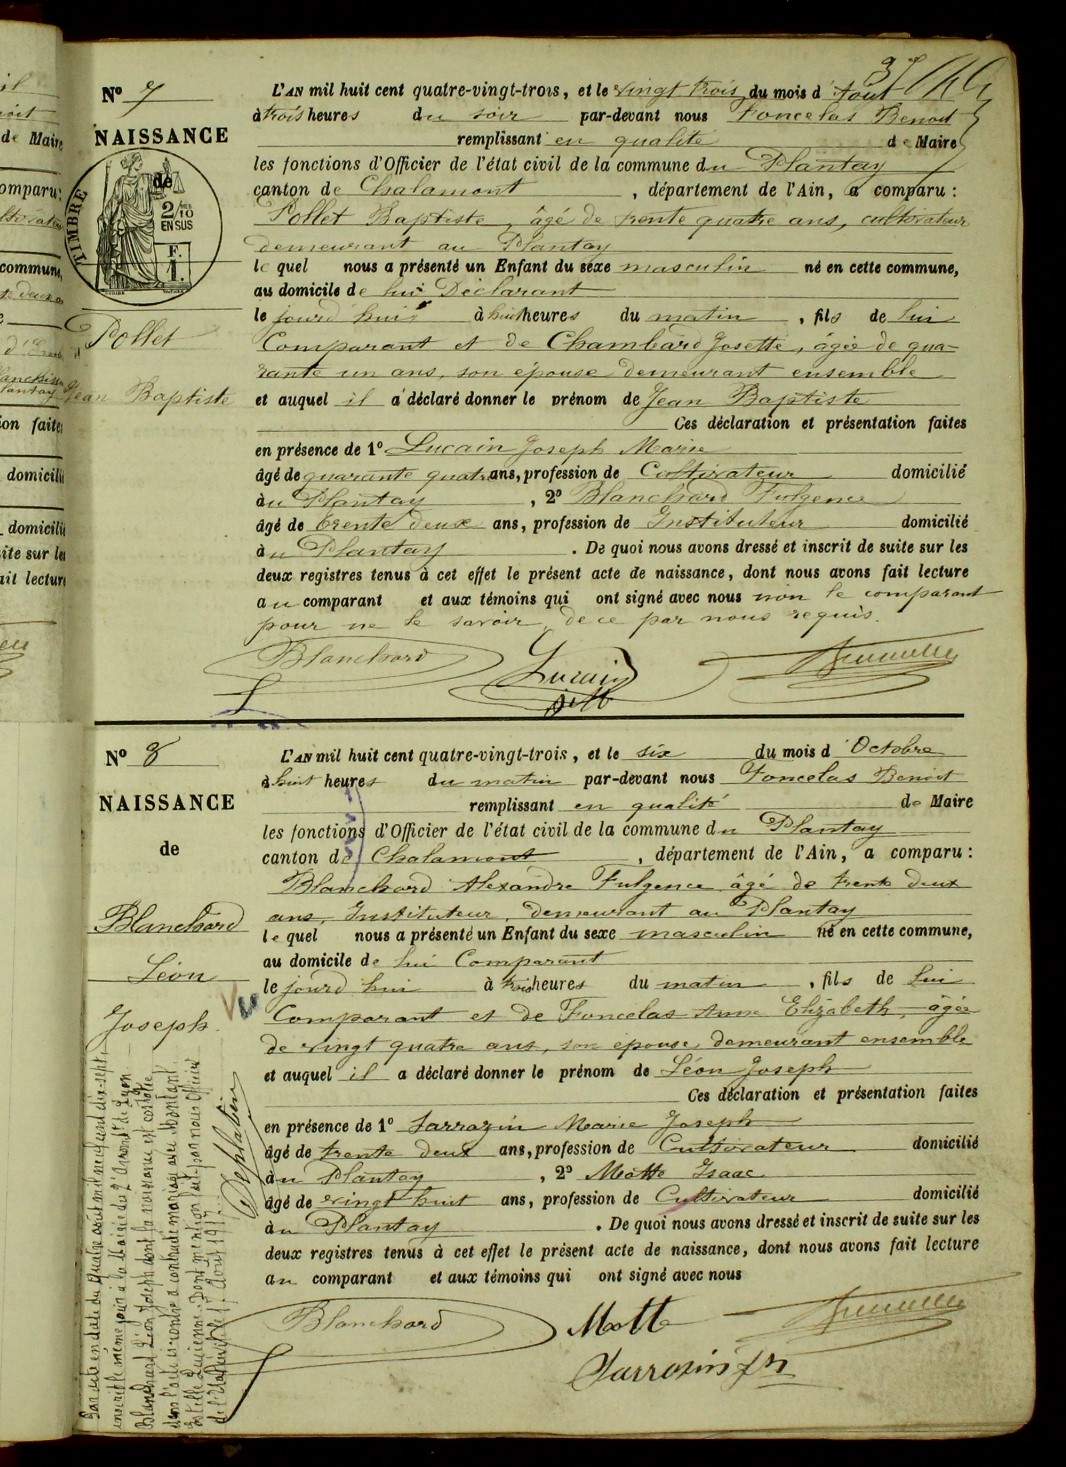 37
N° 7
NAISSANCE
de
TIMBRE
2/10
EN SUS
F.
1.
Pollet
Jean Baptiste
L'AN mil huit cent quatre-vingt-trois, et le vingt trois du mois d'Août
à trois heures du soir par-devant nous Foncelas Benoit
remplissant en qualité de Maire
les fonctions d'Officier de l'état civil de la commune du Plantay
canton de Chalamont, département de l'Ain, a comparu :
Pollet Baptiste, âgé de trente quatre ans, cultivateur
demeurant au Plantay
le quel nous a présenté un Enfant du sexe masculin né en cette commune,
au domicile de lui Déclarant
le jourd'hui à huit heures du matin, fils de lui
Comparant et de Chambard Josette, agée de qua-
rante un ans, son épouse demeurant ensemble
et auquel il a déclaré donner le prénom de Jean Baptiste
Ces déclaration et présentation faites
en présence de 1° Lucain Joseph Marie
âgé de quarante quatre ans, profession de Cultivateur domicilié
à u Plantay, 2° Blanchard Fulgence
âgé de trente deux ans, profession de Instituteur domicilié
à u Plantay. De quoi nous avons dressé et inscrit de suite sur les
deux registres tenus à cet effet le présent acte de naissance, dont nous avons fait lecture
au comparant et aux témoins qui ont signé avec nous non le comparant
pour ne le savoir, de ce par nous requis.
Blanchard Lucain
N° 8
NAISSANCE
de
Blanchard
Léon
Joseph
Vu
L'AN mil huit cent quatre-vingt-trois, et le six du mois d'Octobre
à huit heures du matin par-devant nous Foncelas Benoit
remplissant en qualité de Maire
les fonctions d'Officier de l'état civil de la commune du Plantay
canton de Chalamont, département de l'Ain, a comparu :
Blanchard Alexandre Fulgence âgé de trente deux
ans, Instituteur, demeurant au Plantay
le quel nous a présenté un Enfant du sexe masculin né en cette commune,
au domicile de lui Comparant
le jourd'hui à trois heures du matin, fils de lui
Comparant et de Foncelas Anne Elizabeth, âgée
de vingt quatre ans, son épouse demeurant ensemble
et auquel il a déclaré donner le prénom de Léon Joseph
Ces déclaration et présentation faites
en présence de 1° Sarrazin Marie Joseph
âgé de trente deux ans, profession de Cultivateur domicilié
à u Plantay, 2° Motte Isaac
âgé de vingt huit ans, profession de Cultivateur domicilié
à u Plantay. De quoi nous avons dressé et inscrit de suite sur les
deux registres tenus à cet effet le présent acte de naissance, dont nous avons fait lecture
au comparant et aux témoins qui ont signé avec nous
Blanchard Motte
Sarrazin
Par acte en date du quatre août mil neuf cent dix-sept,
inscrit le même jour à la Mairie du 2e Arrondt de Lyon
Blanchard Léon Joseph dont la naissance est constatée
dans l'acte ci-contre a contracté mariage avec
Lucienne. Dont mention faite par nous Officier
Août 1917.